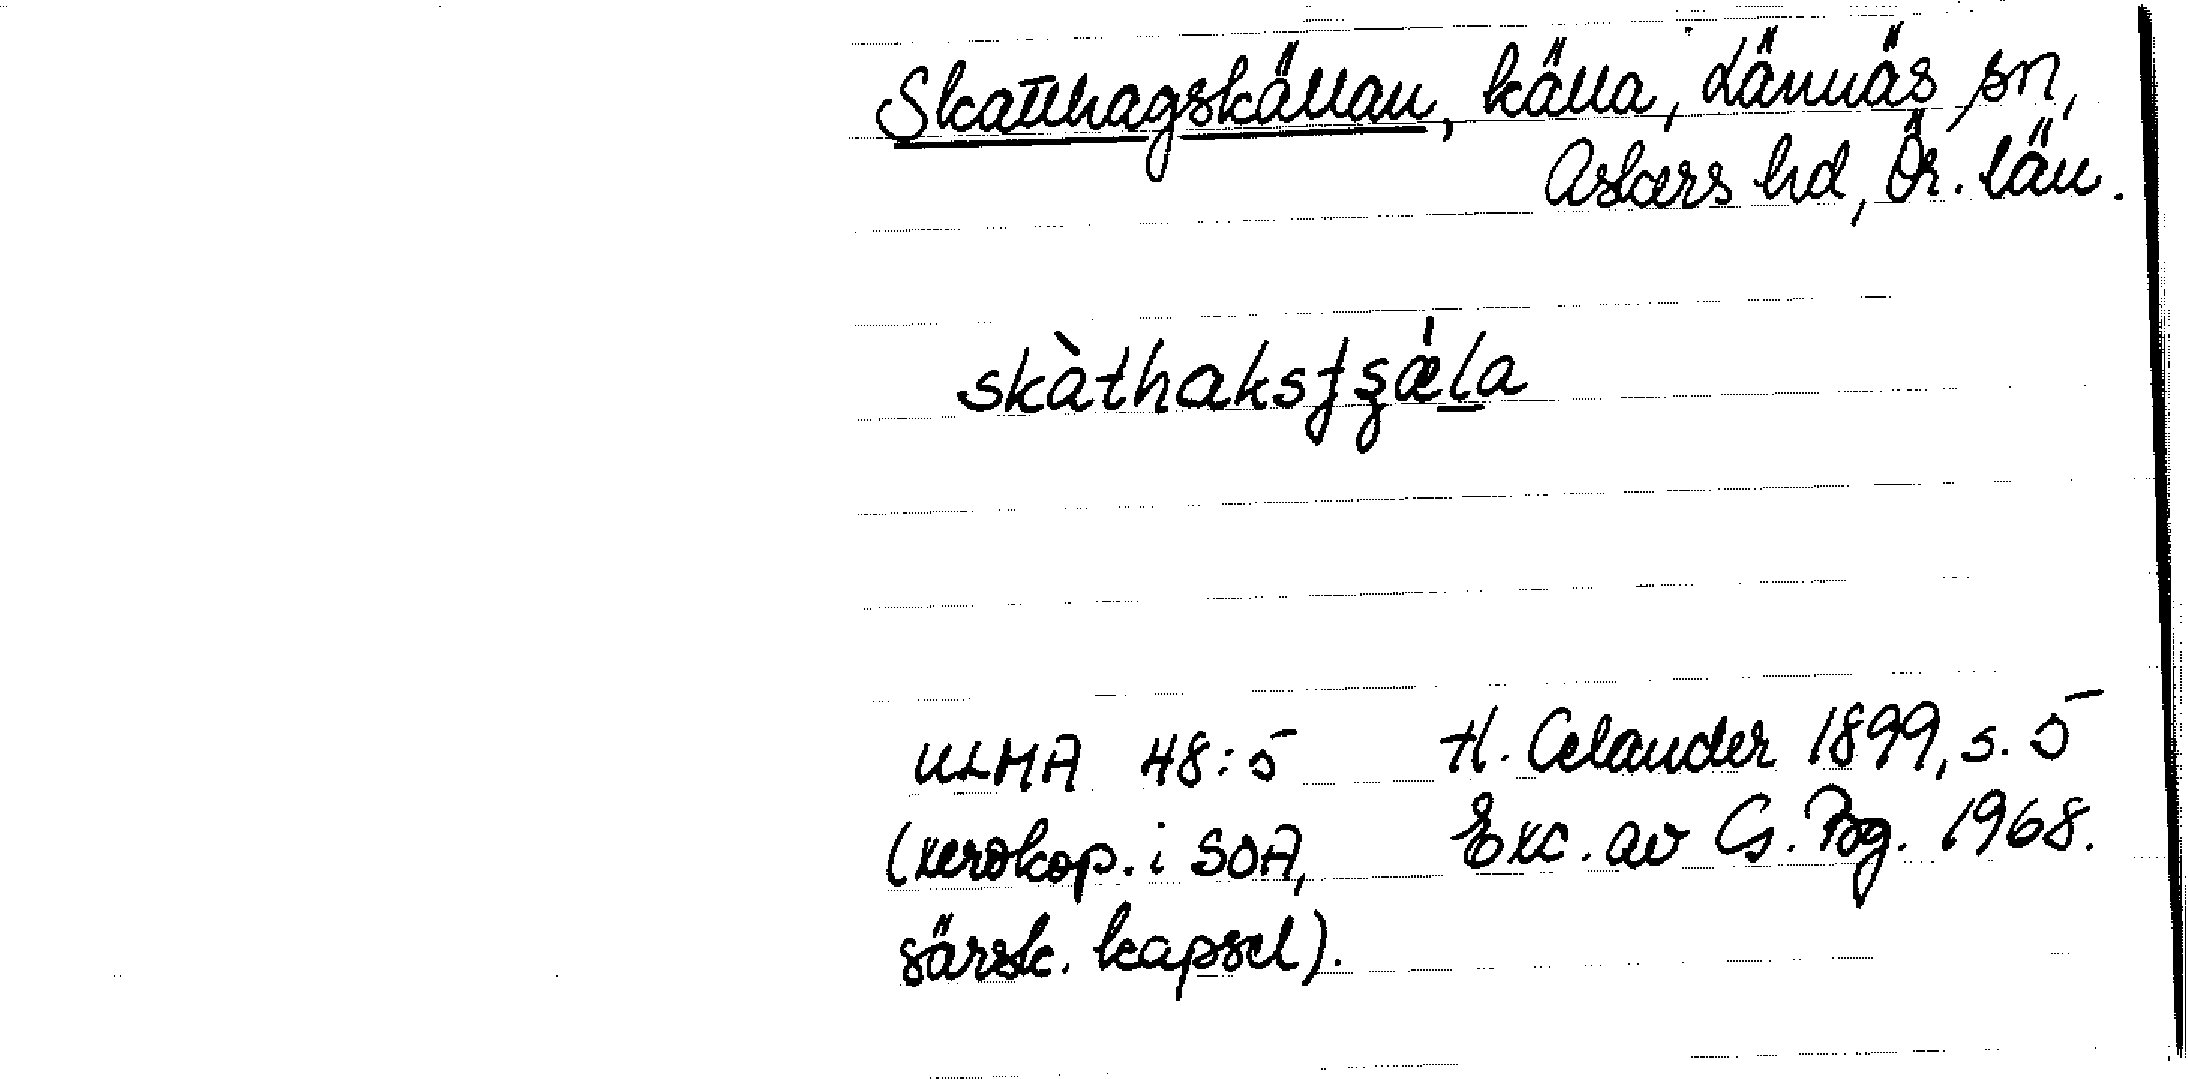 Skatthagskällan, källa, Lännäs sn,
Askers hd, Ör. län.
skàthakstʂǽla
ULMA 48:5 H. Celander 1899, s. 5
(xerokop. i SOA, Exc. av G. Bg. 1968.
särsk. kapsel).